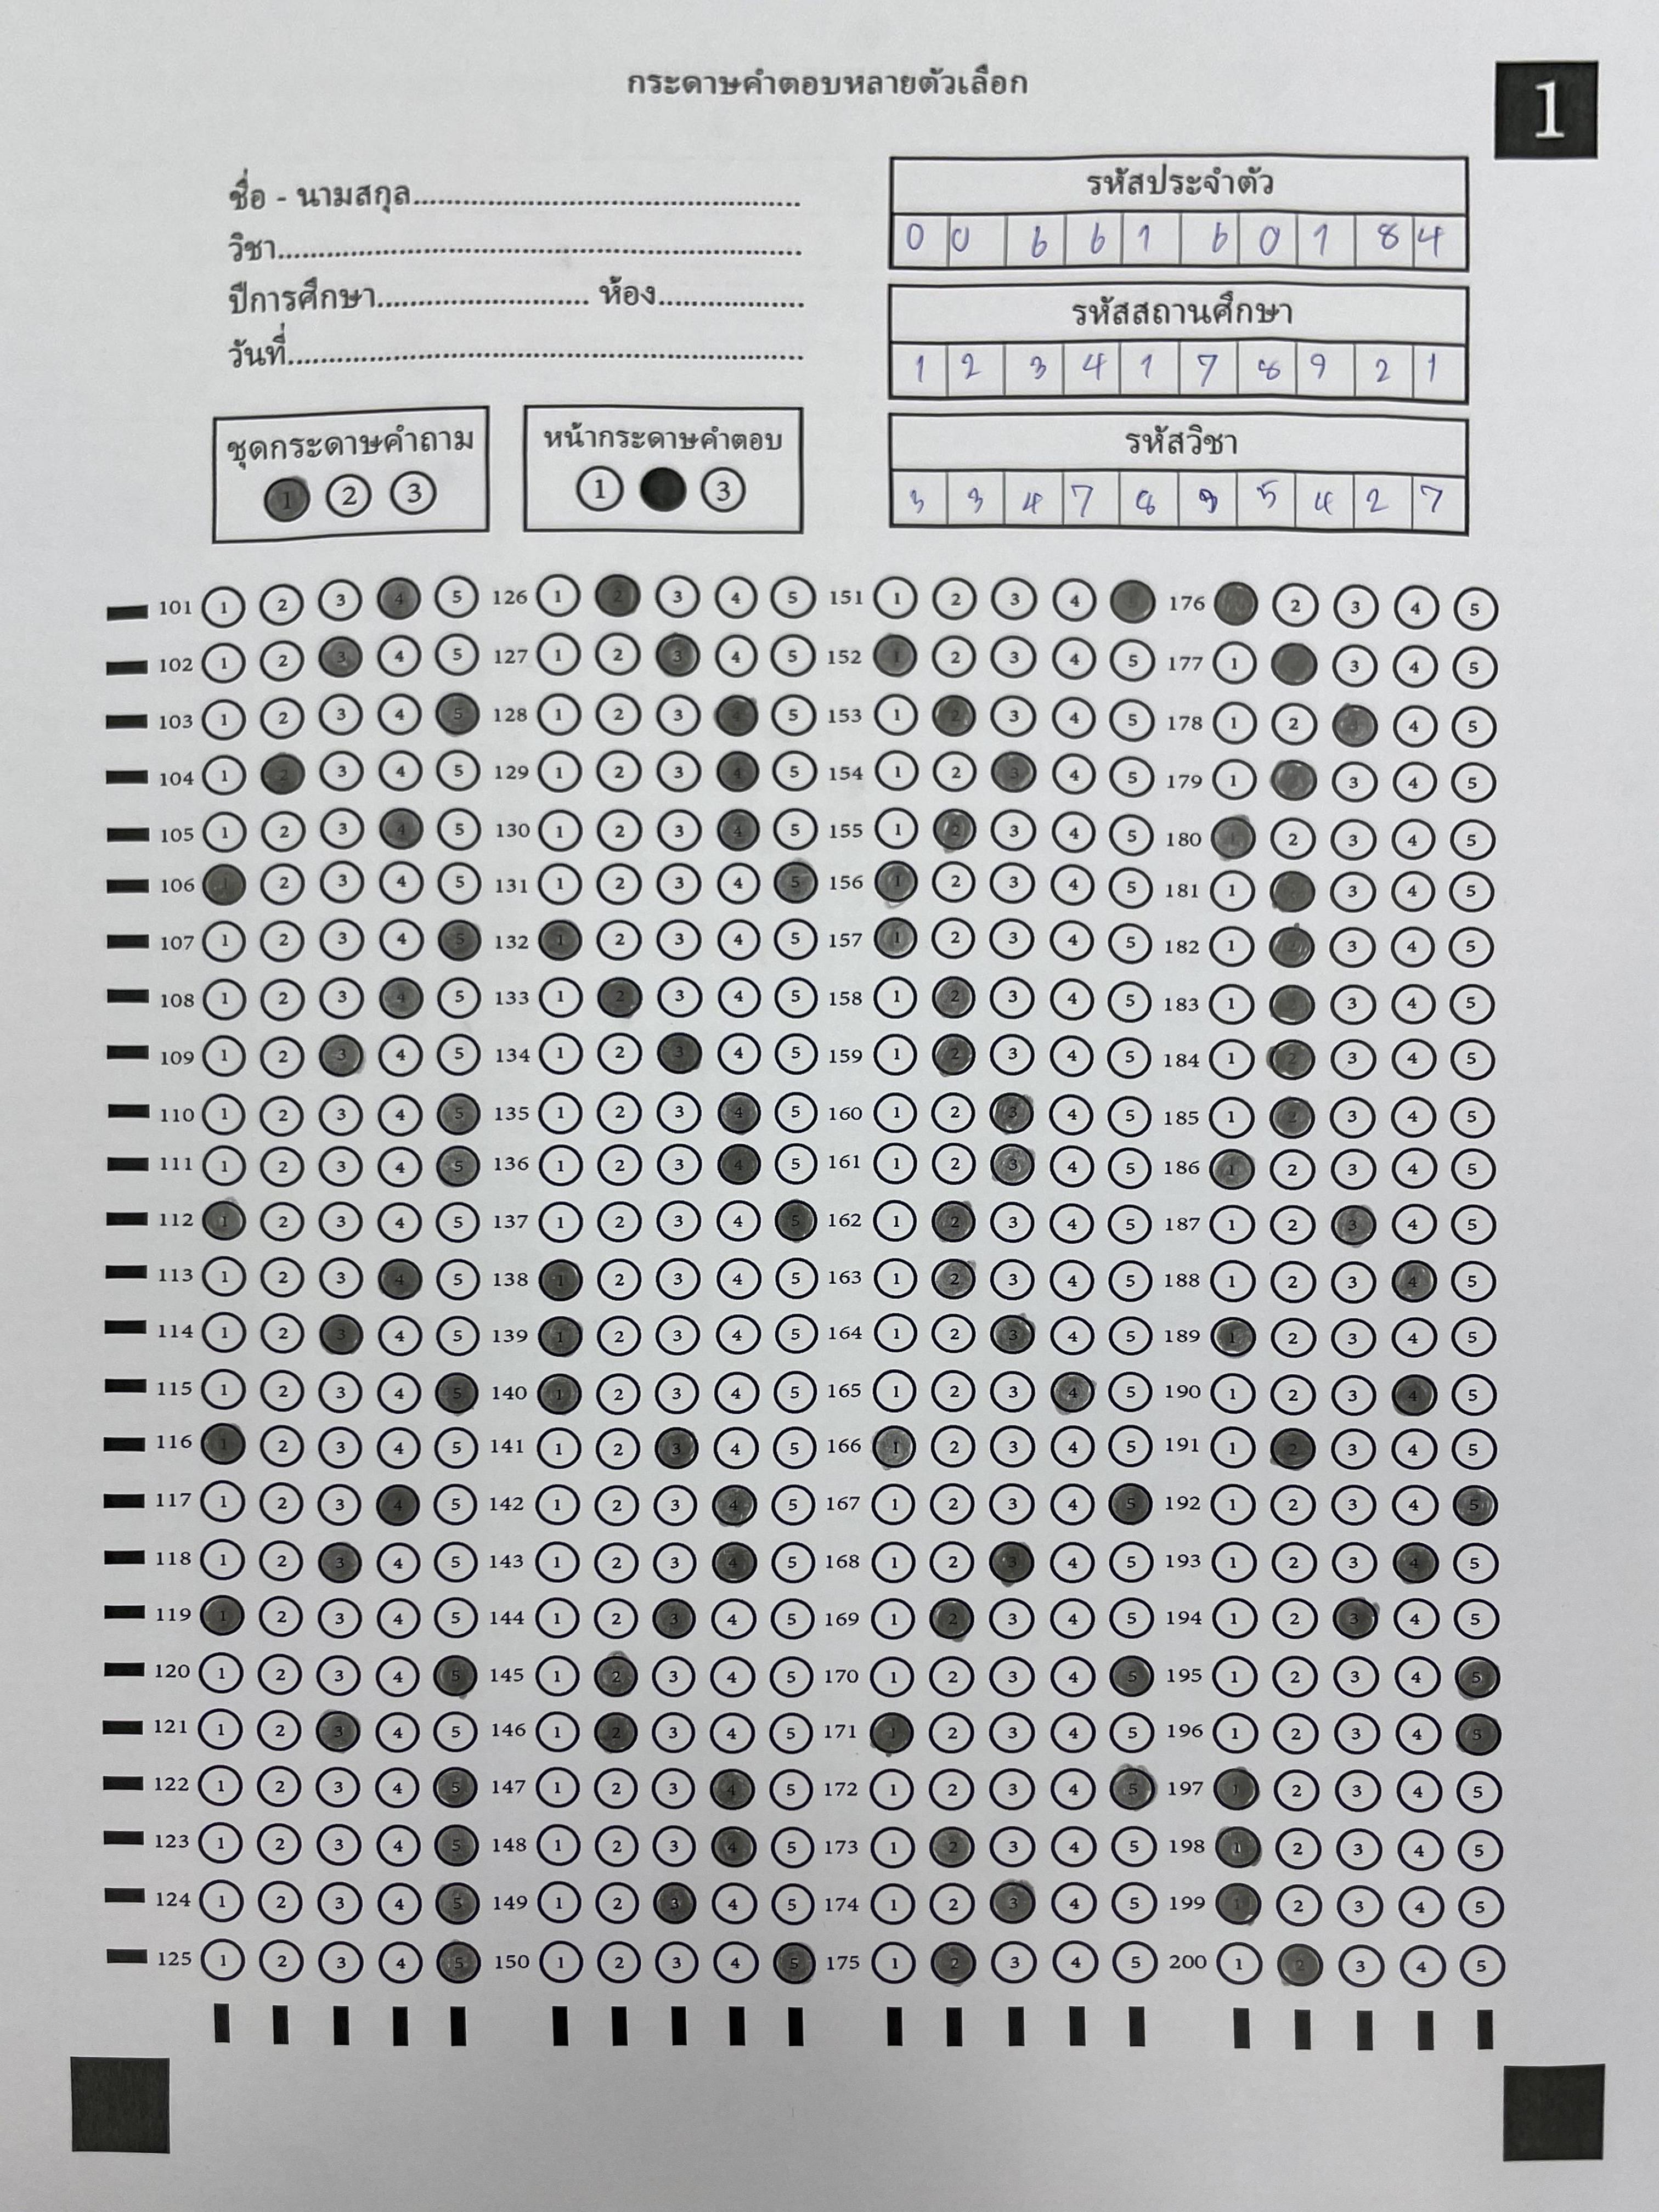 กระดาษคำตอบหลายตัวเลือก
1
ชื่อ - นามสกุล................................................
วิชา................................................................
ปีการศึกษา.......................... ห้อง..................
วันที่...............................................................
รหัสประจำตัว
0 0 6 6 1 6 0 1 8 4
รหัสสถานศึกษา
1 2 3 4 1 7 8 9 2 1
รหัสวิชา
3 3 4 7 8 9 5 4 2 7
ชุดกระดาษคำถาม
1 2 3
หน้ากระดาษคำตอบ
1 3
101 1 2 3 4 5 126 1 2 3 4 5 151 1 2 3 4 176 2 3 4 5
102 1 2 3 4 5 127 1 2 3 4 5 152 1 2 3 4 5 177 1 3 4 5
103 1 2 3 4 5 128 1 2 3 4 5 153 1 2 3 4 5 178 1 2 3 4 5
104 1 2 3 4 5 129 1 2 3 4 5 154 1 2 3 4 5 179 1 2 3 4 5
105 1 2 3 4 5 130 1 2 3 4 5 155 1 2 3 4 5 180 1 2 3 4 5
106 1 2 3 4 5 131 1 2 3 4 5 156 1 2 3 4 5 181 1 2 3 4 5
107 1 2 3 4 5 132 1 2 3 4 5 157 1 2 3 4 5 182 1 2 3 4 5
108 1 2 3 4 5 133 1 2 3 4 5 158 1 2 3 4 5 183 1 2 3 4 5
109 1 2 3 4 5 134 1 2 3 4 5 159 1 2 3 4 5 184 1 2 3 4 5
110 1 2 3 4 5 135 1 2 3 4 5 160 1 2 3 4 5 185 1 2 3 4 5
111 1 2 3 4 5 136 1 2 3 4 5 161 1 2 3 4 5 186 1 2 3 4 5
112 1 2 3 4 5 137 1 2 3 4 5 162 1 2 3 4 5 187 1 2 3 4 5
113 1 2 3 4 5 138 1 2 3 4 5 163 1 2 3 4 5 188 1 2 3 4 5
114 1 2 3 4 5 139 1 2 3 4 5 164 1 2 3 4 5 189 1 2 3 4 5
115 1 2 3 4 5 140 1 2 3 4 5 165 1 2 3 4 5 190 1 2 3 4 5
116 1 2 3 4 5 141 1 2 3 4 5 166 1 2 3 4 5 191 1 2 3 4 5
117 1 2 3 4 5 142 1 2 3 4 5 167 1 2 3 4 5 192 1 2 3 4 5
118 1 2 3 4 5 143 1 2 3 4 5 168 1 2 3 4 5 193 1 2 3 4 5
119 1 2 3 4 5 144 1 2 3 4 5 169 1 2 3 4 5 194 1 2 3 4 5
120 1 2 3 4 5 145 1 2 3 4 5 170 1 2 3 4 5 195 1 2 3 4 5
121 1 2 3 4 5 146 1 2 3 4 5 171 1 2 3 4 5 196 1 2 3 4 5
122 1 2 3 4 5 147 1 2 3 4 5 172 1 2 3 4 5 197 1 2 3 4 5
123 1 2 3 4 5 148 1 2 3 4 5 173 1 2 3 4 5 198 1 2 3 4 5
124 1 2 3 4 5 149 1 2 3 4 5 174 1 2 3 4 5 199 1 2 3 4 5
125 1 2 3 4 5 150 1 2 3 4 5 175 1 2 3 4 5 200 1 2 3 4 5